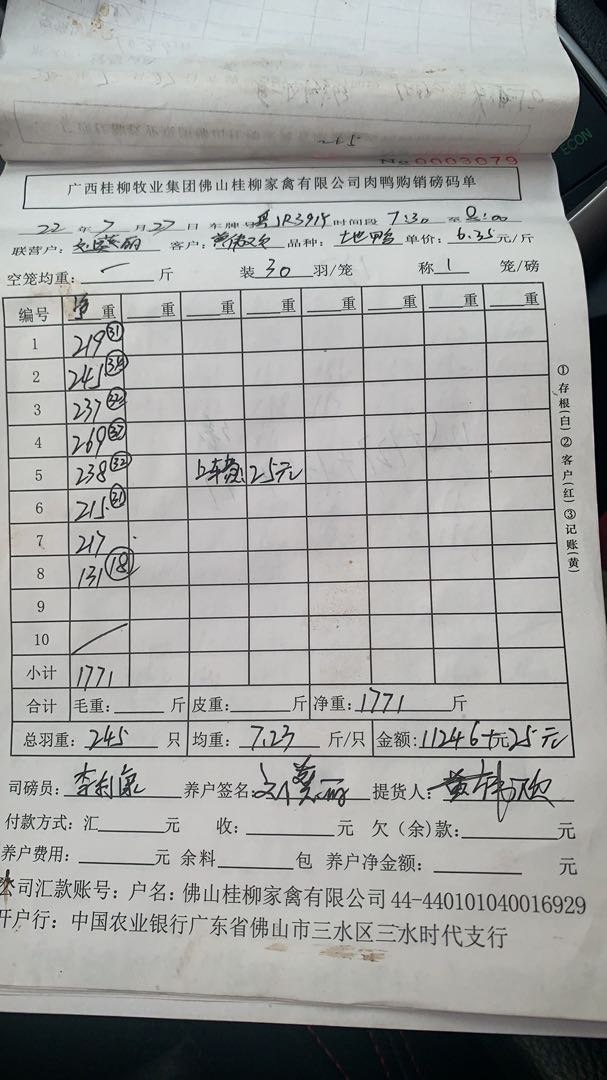 No 0003079
广西桂柳牧业集团佛山桂柳家禽有限公司肉鸭购销磅码单
22 年 7 月 27 日 车牌号 JR3915 时间段 7:30 至
联营户: 客户: 品种: 土地鸭 单价: 6.35 元/斤
空笼均重: 一 斤 装 30 羽/笼 称 1 笼/磅
编号 净重 重 重 重 重 重 重 重
1 219 (31)
2 245
3 237 (32)
4 269 (37)
5 238 (32) 上车费: 25元
6 215 (31)
7 217
8 131 (18)
9
10
小计 1771
合计 毛重: 斤 皮重: 斤 净重: 1771 斤
总羽重: 245 只 均重: 7.23 斤/只 金额: 11246+元25 元
司磅员: 养户签名: 提货人:
付款方式: 汇 元 收: 元 欠(余)款: 元
养户费用: 元 余料 包 养户净金额: 元
公司汇款账号: 户名: 佛山桂柳家禽有限公司 44-440101040016929
开户行: 中国农业银行广东省佛山市三水区三水时代支行
①存根(白)②客户(红)③记账(黄)
ECON